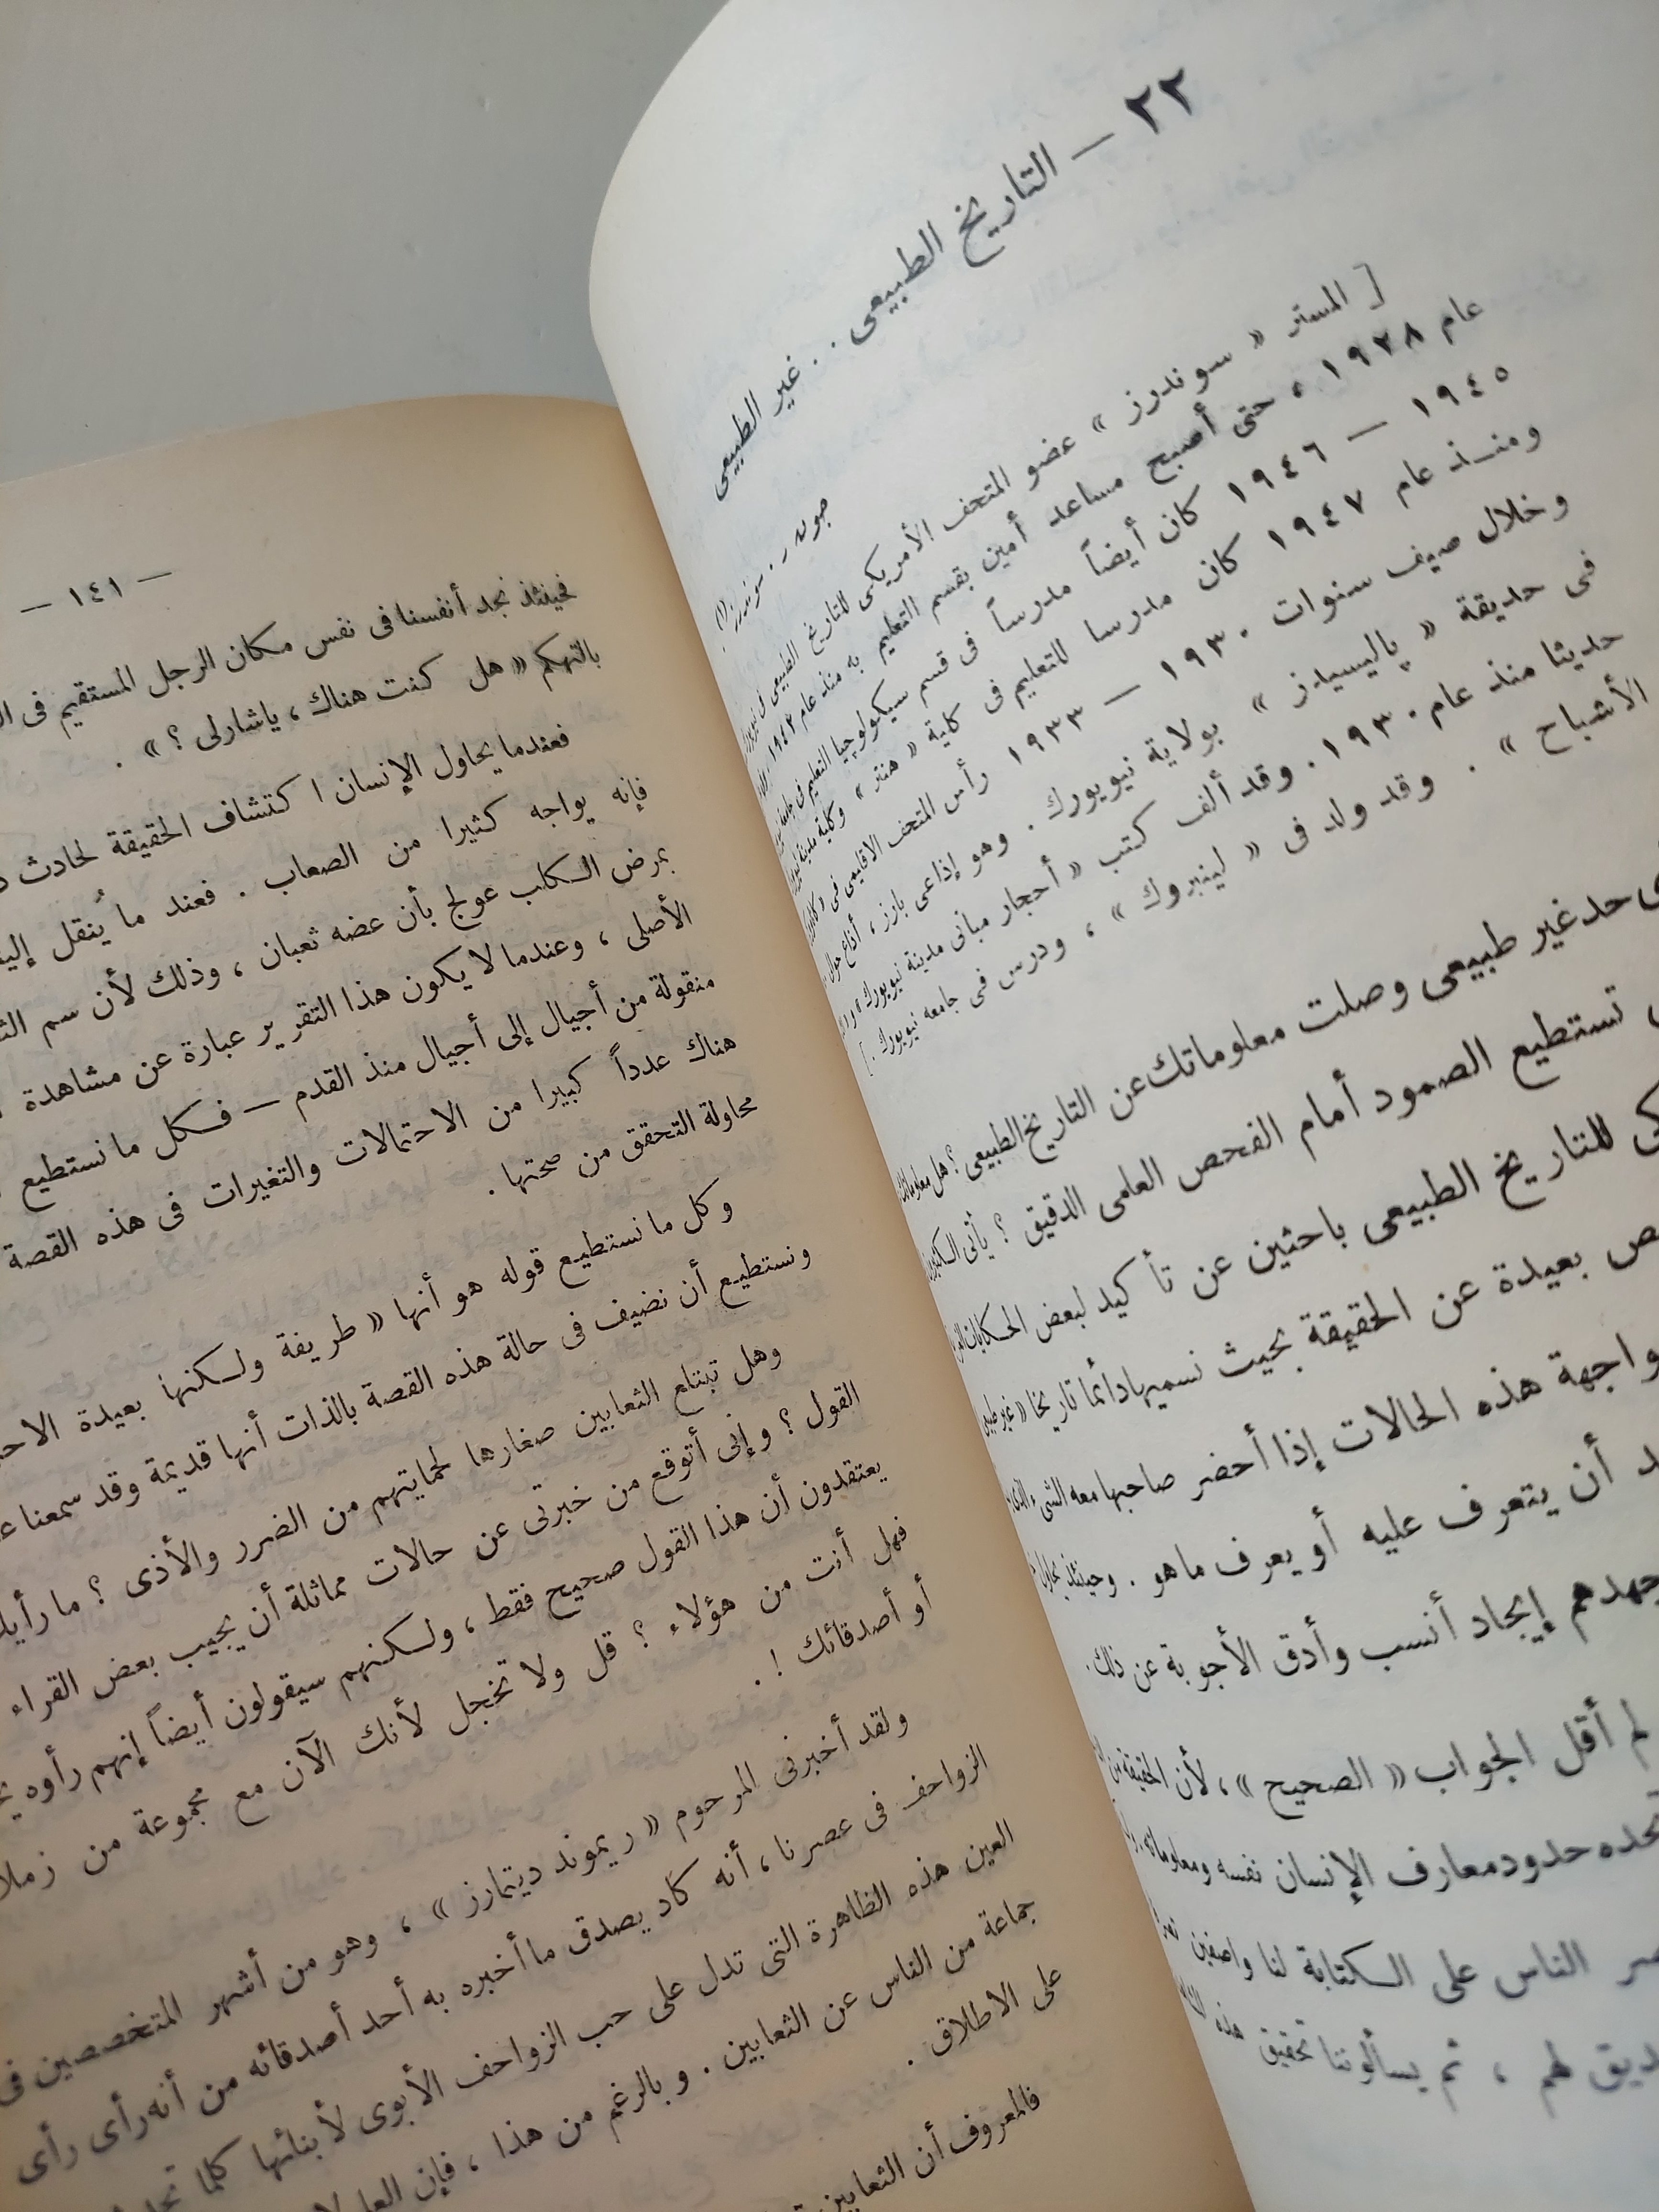 ٢٢ — التاريخ الطبيعى . . غير الطبيعى
جون ر . سوندرز (١)
[ المستر « سوندرز » عضو المتحف الأمريكى للتاريخ الطبيعى فى نيويورك
عام ١٩٢٨ ، حتى أصبح مساعد أمين بقسم التعليم به منذ عام
١٩٤٥ — ١٩٤٦ كان أيضاً مدرساً فى قسم سيكولوچيا التعليم فى جامعة
ومنذ عام ١٩٤٧ كان مدرسا للتعليم فى كلية « هنتر » وكلية مدينة
وخلال صيف سنوات ١٩٣٠ — ١٩٣٣ رأس المتحف الاقليمى فى
فى حديقة « پاليسيدز » بولاية نيويورك . وهو إذاعى بارز ، أذاع حوالى
حديثا منذ عام ١٩٣٠ . وقد ألف كتب « أحجار مبانى مدينة نيويورك »
الأشباح » . وقد ولد فى « لينبروك » ، ودرس فى جامعه نيويورك . ]
حد غير طبيعى وصلت معلوماتك عن التاريخ الطبيعى ؟ هل معلوماتك
تستطيع الصمود أمام الفحص العلمى الدقيق ؟ يأتى الكثيرون
للتاريخ الطبيعى باحثين عن تأكيد لبعض الحكايات
بعيدة عن الحقيقة بحيث نسميها دائما تاريخا « غير طبيعى
هذه الحالات إذا أحضر صاحبها معه الشىء الذى
أن يتعرف عليه أو يعرف ما هو . وحينئذ يحاول
جهدهم إيجاد أنسب وأدق الأجوبة عن ذلك .
لم أقل الجواب « الصحيح » ، لأن الحقيقة
تحده حدود معارف الإنسان نفسه ومعلوماته
الناس على الكتابة لنا واصفين
لهم ، ثم يسألوننا تحقيق هذه
— ١٤١ —
فحينئذ نجد أنفسنا فى نفس مكان الرجل المستقيم فى
بالتهكم « هل كنت هناك ، ياشارلى ؟ » .
فعندما يحاول الإنسان اكتشاف الحقيقة لحادث
فإنه يواجه كثيرا من الصعاب . فعند ما يُنقل
بمرض الكلب عولج بأن عضه ثعبان ، وذلك لأن سم
الأصلى ، وعندما لا يكون هذا التقرير عبارة عن مشاهدة
منقولة من أجيال إلى أجيال منذ القدم — فكل ما نستطيع
هناك عدداً كبيرا من الاحتمالات والتغيرات فى هذه القصة
محاولة التحقق من صحتها .
وكل ما نستطيع قوله هو أنها « طريفة ولكنها بعيدة
ونستطيع أن نضيف فى حالة هذه القصة بالذات أنها قديمة وقد سمعنا
وهل تبتلع الثعابين صغارها لحمايتهم من الضرر والأذى ؟ ما رأيك
القول ؟ وإنى أتوقع من خبرتى عن حالات مماثلة أن يجيب بعض القراء
يعتقدون أن هذا القول صحيح فقط ، ولكنهم سيقولون أيضاً إنهم رأوه
فهل أنت من هؤلاء ؟ قل ولا تخجل لأنك الآن مع مجموعة من
أو أصدقائك ! .
ولقد أخبرنى المرحوم « ريموند ديتمارز » ، وهو من أشهر المتخصصين فى
الزواحف فى عصرنا ، أنه كاد يصدق ما أخبره به أحد أصدقائه من أنه رأى رأى
العين هذه الظاهرة التى تدل على حب الزواحف الأبوى لأبنائها كلما
جماعة من الناس عن الثعابين . وبالرغم من هذا ، فإن
على الاطلاق .
فالمعروف أن الثعابين